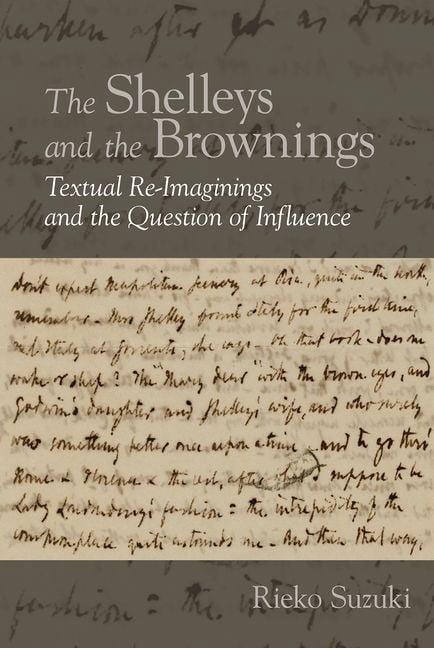 hearken after it as Donne
The Shelleys
and the Brownings
Textual Re-Imaginings
and the Question of Influence
Don't expect Neapolitan Scenery at Pisa, quite in the North,
remember. Mrs Shelley found Italy for the first time,
real Italy at Sorrento, she says. Oh that book - does one
wake or sleep? The "Mary dear" with the brown eyes, and
Godwin's daughter and Shelley's wife, and who surely
was something better once upon a time - and to go thro'
Rome & Florence & the rest, after what I suppose to be
Lady Londonderry's fashion: the intrepidity of the
commonplace quite astounds me. And then that way,
Rieko Suzuki
fashion: the intrepidity